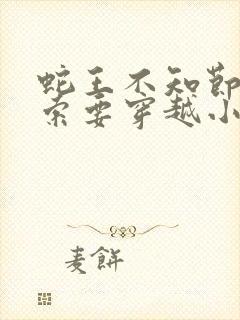 蛇王不知節
索要穿越小
麦餅